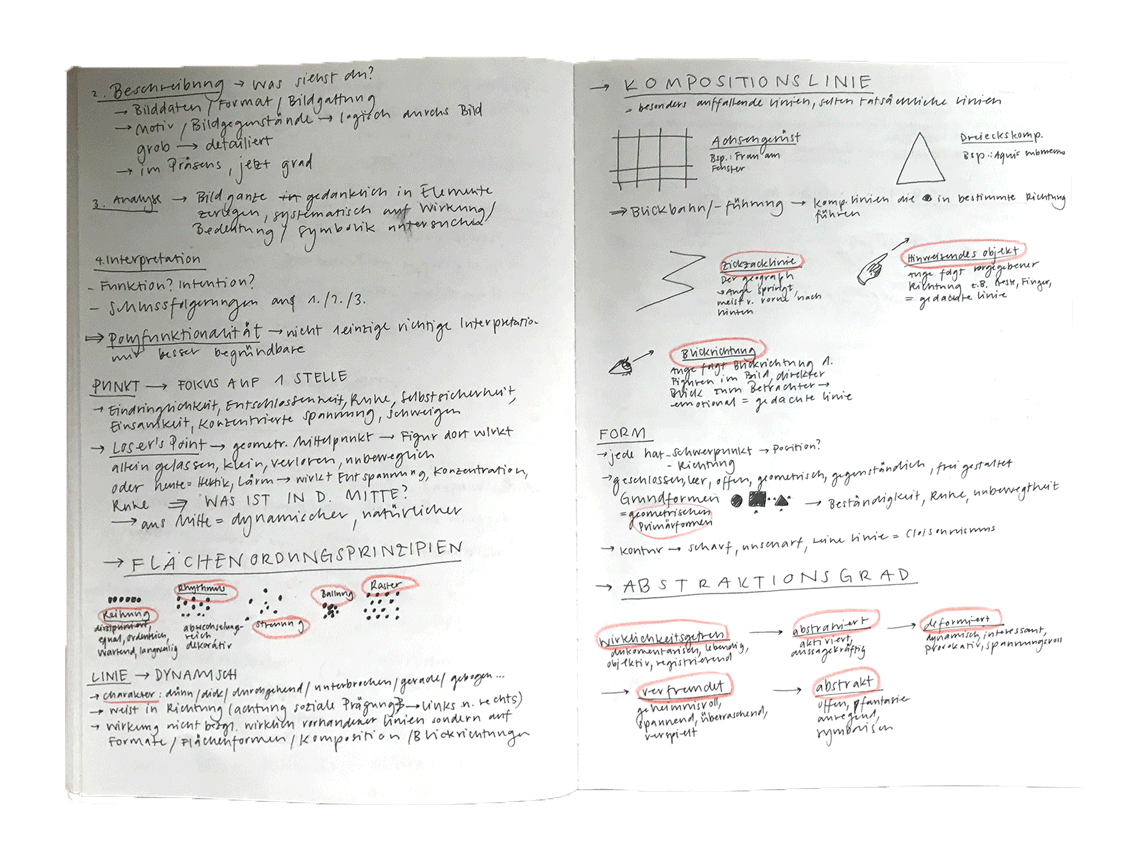 2. Beschreibung → was siehst du?
→ Bilddaten / Format / Bildgattung
→ Motiv / Bildgegenstände → logisch durchs Bild
grob → detailiert
→ im Präsens, jetzt grad
3. Analyse → Bildganze gedanklich in Elemente
zerlegen, systematisch auf Wirkung/
Bedeutung / Symbolik untersuchen
4. Interpretation
- Funktion? Intention?
- Schlussfolgerungen aus 1./2./3.
⇒ Polyfunktionalität → nicht 1 einzige richtige Interpretatio-
nur besser begründbare
PUNKT → FOKUS AUF 1 STELLE
→ Eindringlichkeit, Entschlossenheit, Ruhe, Selbstsicherheit,
Einsamkeit, konzentrierte Spannung, Schweigen
→ Loser's Point → geometr. Mittelpunkt → Figur dort wirkt
allein gelassen, klein, verloren, unbeweglich
oder heute = Hektik, Lärm → wirkt Entspannung, Konzentration,
Ruhe ⇒ WAS IST IN D. MITTE?
→ aus Mitte = dynamischer, natürlicher
→ FLÄCHENORDUNGSPRINZIPIEN
Reihung
diszipliniert,
egual, ordentlich,
wartend, langweilig
Rhythmus
abwechslung-
reich
dekorativ
Streuung
Ballung
Raster
LINIE → DYNAMISCH
→ Charakter: dünn / dick / durchgehend / unterbrochen / gerade / gebogen...
→ weist in Richtung (Achtung soziale Prägung → links n. rechts)
→ Wirkung nicht bezgl. wirklich vorhandener Linien sondern auf
Formate / Flächenformen / Komposition / Blickrichtungen
→ KOMPOSITIONSLINIE
- besonders auffallende Linien, selten tatsächliche Linien
Achsengerüst
Bsp.: Frau am
Fenster
Dreieckskomp.
Bsp.: Aquis submersus
⇒ Blickbahn/-führung → Komp.linien die in bestimmte Richtung
führen
Zickzacklinie
Der Geograph
→ Auge springt,
meist v. vorne nach
hinten
Hinweisendes Objekt
Auge folgt vorgegebener
Richtung z.B. Geste, Finger,
= gedachte Linie
Blickrichtung
Auge folgt Blickrichtung 1.
Figuren im Bild, direkter
Blick zum Betrachter →
emotional = gedachte Linie
FORM
→ jede hat - Schwerpunkt → Position?
- Richtung
→ geschlossen, leer, offen, geometrisch, gegenständlich, frei gestaltet
Grundformen → Beständigkeit, Ruhe, unbewegtheit
= geometrischen
Primärformen
→ Kontur → scharf, unscharf, keine Linie = Cloisonnismus
→ ABSTRAKTIONSGRAD
wirklichkeitsgetreu →
dokumentarisch, lebendig,
objektiv, registrierend
abstrahiert →
aktiviert,
aussagekräftig
deformiert
dynamisch, interessant,
provokativ, spannungsvoll
→ verfremdet
geheimnisvoll,
spannend, überraschend,
verspielt
→ abstrakt
offen, phantasie
anregend,
symbolisch